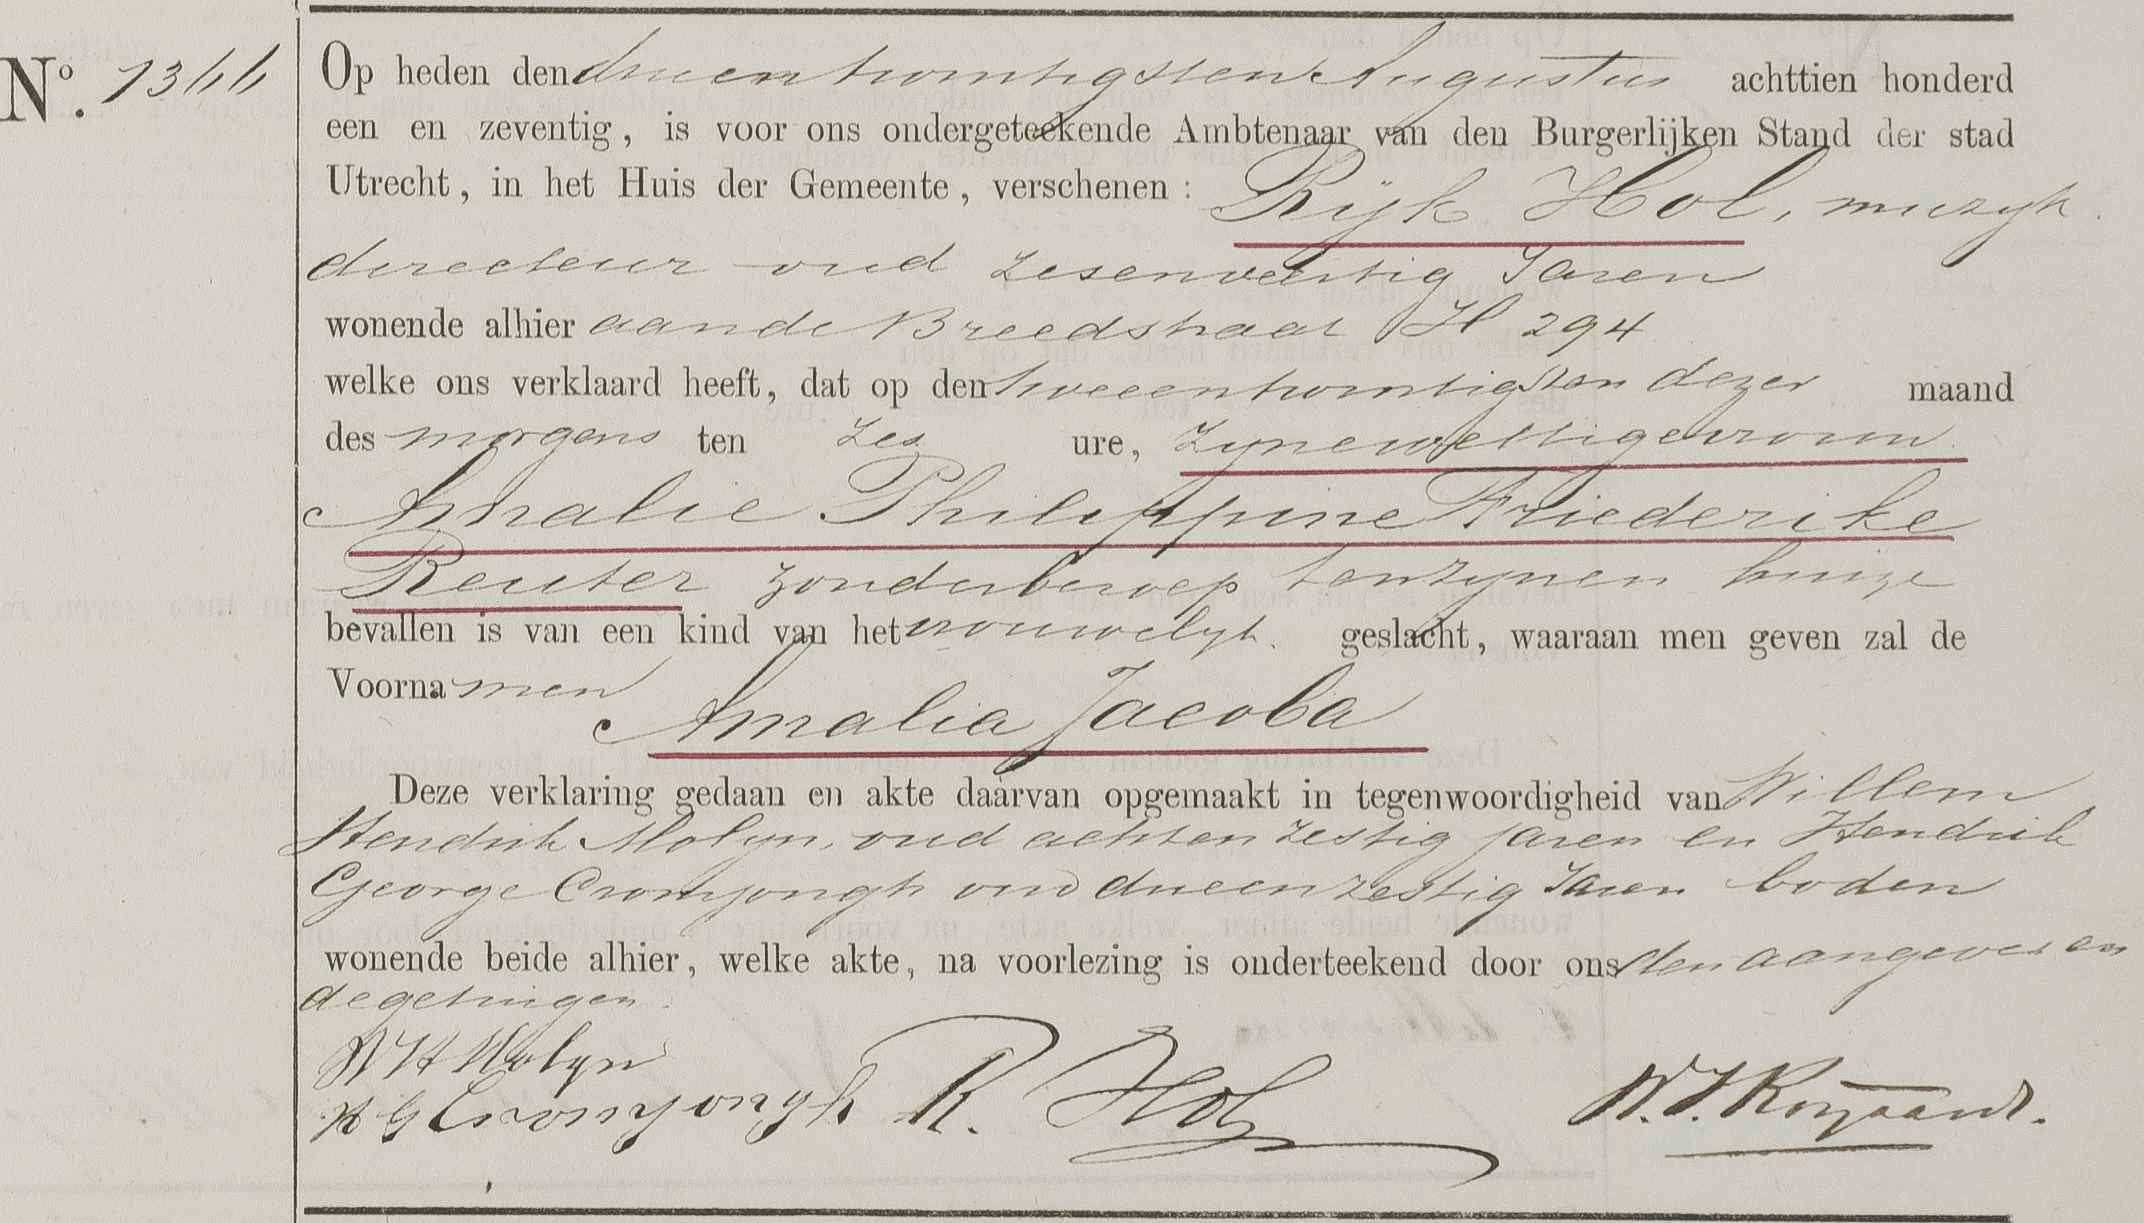 No. 1366
Op heden den drieentwintigsten Augustus achttien honderd
een en zeventig, is voor ons ondergeteekende Ambtenaar van den Burgerlijken Stand der stad
Utrecht, in het Huis der Gemeente, verschenen: Rijk Hol, muzyk
directeur oud zesenveertig Jaren
wonende alhier aande Breedstraat H 294
welke ons verklaard heeft, dat op den tweeentwintigsten dezer maand
des morgens ten zes ure, zyne wettige vrouw
Amalie Philippine Friederike
Reuter zonder beroep tenzynen huize
bevallen is van een kind van het vrouwelyk geslacht, waaraan men geven zal de
Voornamen
Amalia Jacoba
Deze verklaring gedaan en akte daarvan opgemaakt in tegenwoordigheid van Willem
Hendrik Molyn, oud achtenzestig jaren en Hendrik
George Cromjongh oud drieenzestig Jaren boden
wonende beide alhier, welke akte, na voorlezing is onderteekend door ons den aangever en
de getuigen.
W H Molyn
H G Cromjongh R. Hol W. J. Royaards.